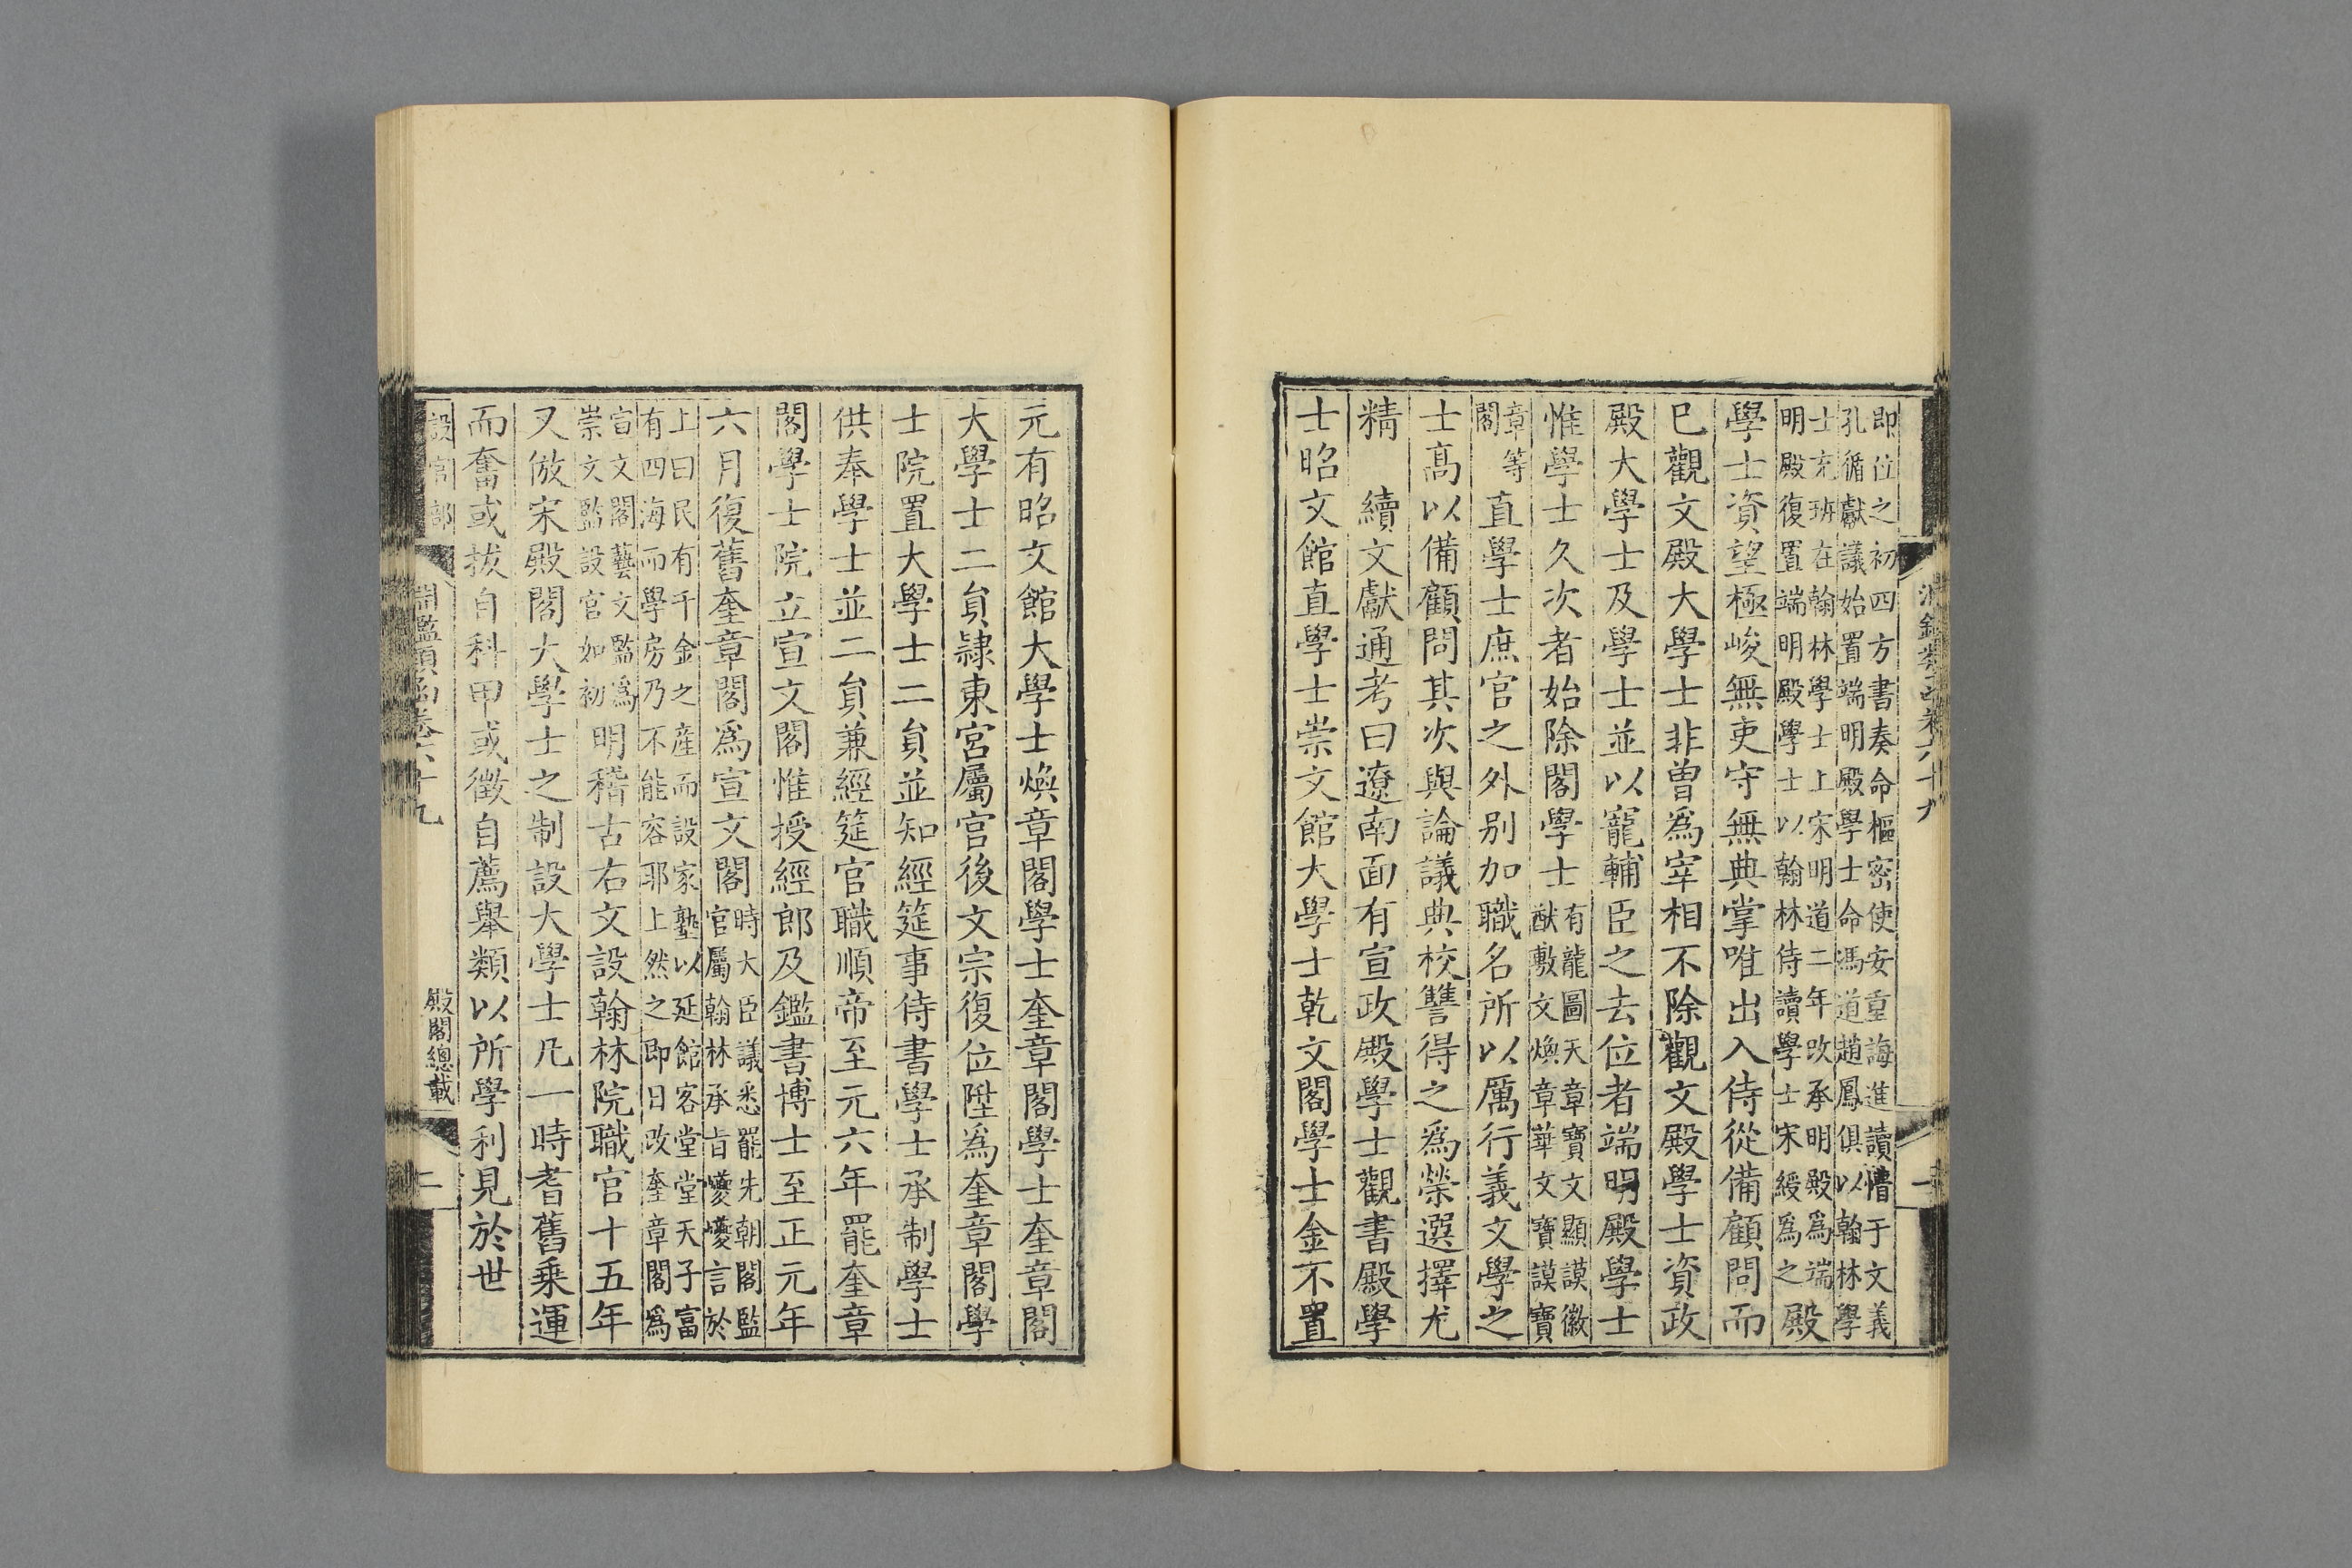 即位之初四方書奏命樞密使安重誨進讀懵于文義
孔循獻議始置端明殿學士命馮道趙鳳俱以翰林學
士充班在翰林學士上宋明道二年改承明殿爲端
明殿復置端明殿學士以翰林侍讀學士宋綬爲之
殿
學士資望極峻無吏守無典掌唯出入侍從備顧問而
巳觀文殿大學士非曾爲宰相不除觀文殿學士資政
殿大學士及學士並以寵輔臣之去位者端明殿學士
惟學士久次者始除閣學士
有龍圖天章寶文顯謨徽
猷敷文煥章華文寶謨寶
章等
閣
直學士庶官之外别加職名所以厲行義文學之
士高以備顧問其次與論議典校讐得之爲榮選擇尤
精　續文獻通考曰遼南面有宣政殿學士觀書殿學
士昭文館直學士崇文館大學士乾文閣學士金不置
元有昭文館大學士煥章閣學士奎章閣學士奎章閣
大學士二貟隷東宮屬官後文宗復位陞爲奎章閣學
士院置大學士二貟並知經筵事侍書學士承制學士
供奉學士並二貟兼經筵官職順帝至元六年罷奎章
閣學士院立宣文閣惟授經郎及鑑書博士至正元年
六月復舊奎章閣爲宣文閣
時大臣議悉罷先朝閣監
官屬翰林承旨巙巙言於
上曰民有千金之産而設家塾以延館客堂堂天子富
有四海而學房乃不能容耶上然之即日改奎章閣爲
宣文閣藝文監爲
崇文監設官如初
明稽古右文設翰林院職官十五年
又倣宋殿閣大學士之制設大學士凡一時耆舊乗運
而奮或拔自科甲或徵自薦舉類以所學利見於世
設官部
殿閣總載
二